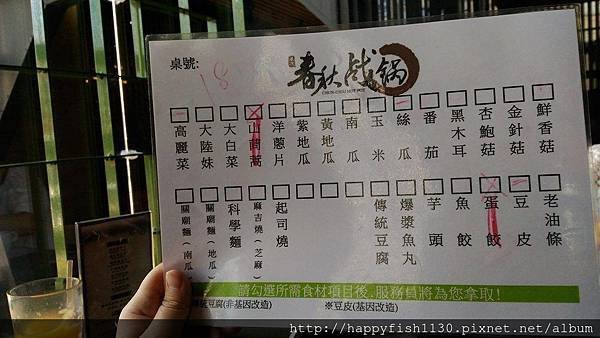 桌號: 18
春秋戰鍋
CHUN CHIU HOT POT
高麗菜
大陸妹
大白菜
山茼蒿
洋蔥片
紫地瓜
黃地瓜
南瓜
玉米
絲瓜
番茄
黑木耳
杏鮑菇
金針菇
鮮香菇
關廟麵(南瓜)
關廟麵(地瓜)
科學麵
麻吉燒(芝麻)
起司燒
傳統豆腐
爆漿魚丸
芋頭
魚餃
蛋餃
豆皮
老油條
請勾選所需食材項目後,服務員將為您拿取!
豆腐(非基因改造) ※豆皮(基因改造)
http://happyfish1130.pixnet.net/album